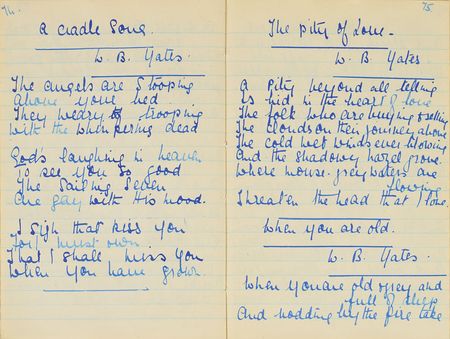 74.
A Cradle Song.
W. B. Yates.
The angels are stooping
Above your bed
They weary of trooping
With the whimpering dead
God's laughing in heaven
To see you so good
The Sailing Seven
Are gay with His mood.
I sigh that kiss you
For I must own
That I shall miss you
When you have grown.
75
The pity of Love.
W. B. Yates
A pity beyond all telling
Is hid in the heart of love
The folk who are buying & selling
The clouds on their journey above
The cold wet winds ever blowing
And the shadowy hazel grove
Where mouse-grey waters are
flowing
Threaten the head that I love.
When you are old.
W. B. Yates.
When you are old & grey and
full of sleep
And nodding by the fire take